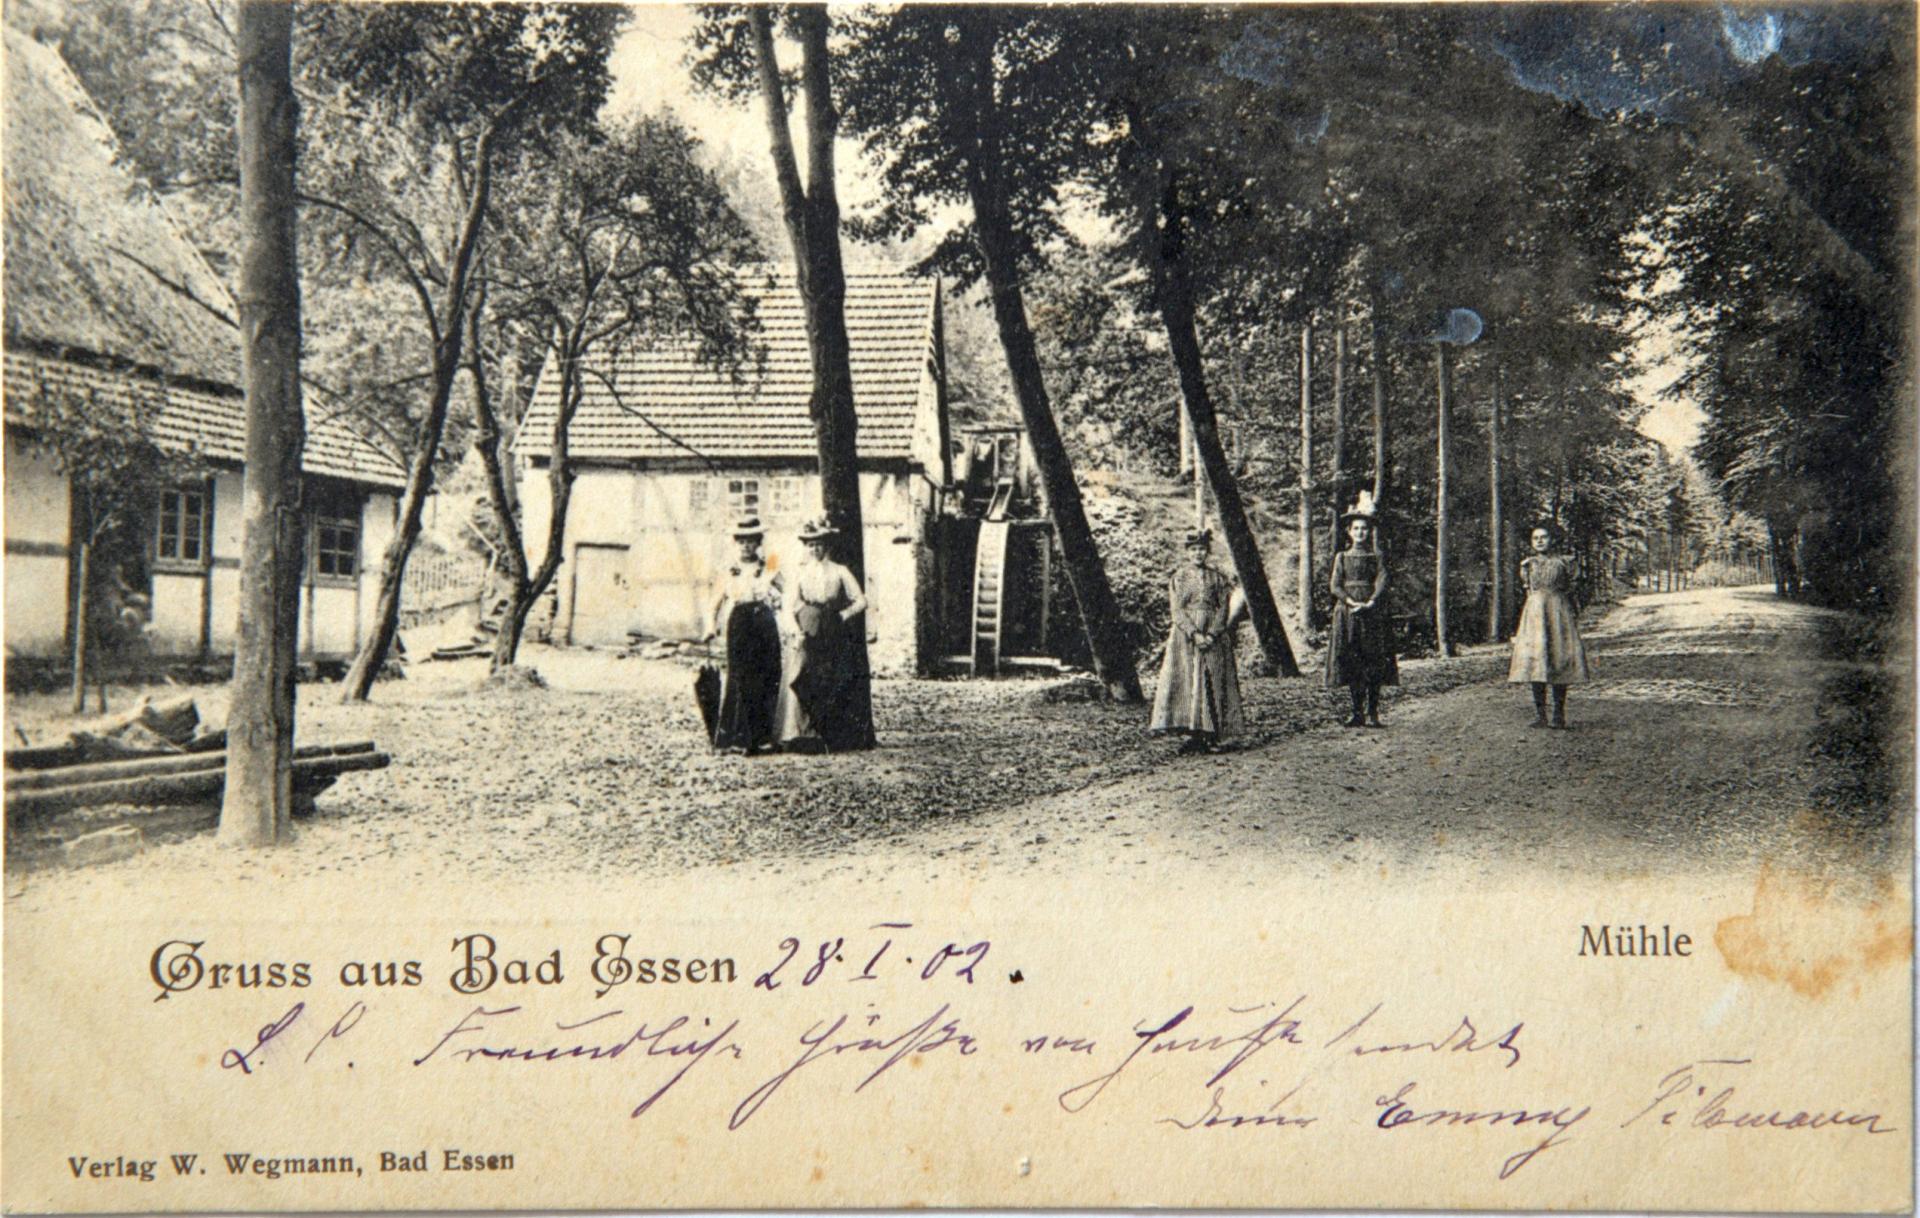 Gruss aus Bad Essen 28. I. 02.
Mühle
L. P. Freundliche Grüße von Hause sendet
deine Emmy
Verlag W. Wegmann, Bad Essen